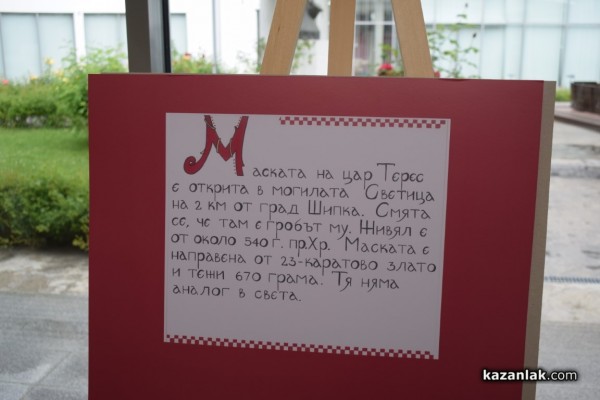 Маската на цар Терес
е открита в могилата Светица
на 2 км от град Шипка. Смята
се, че там е гробът му. Живял е
от около 540 г. пр.Хр. Маската е
направена от 23-каратово злато
и тежи 670 грама. Тя няма
аналог в света.
kazanlak.com